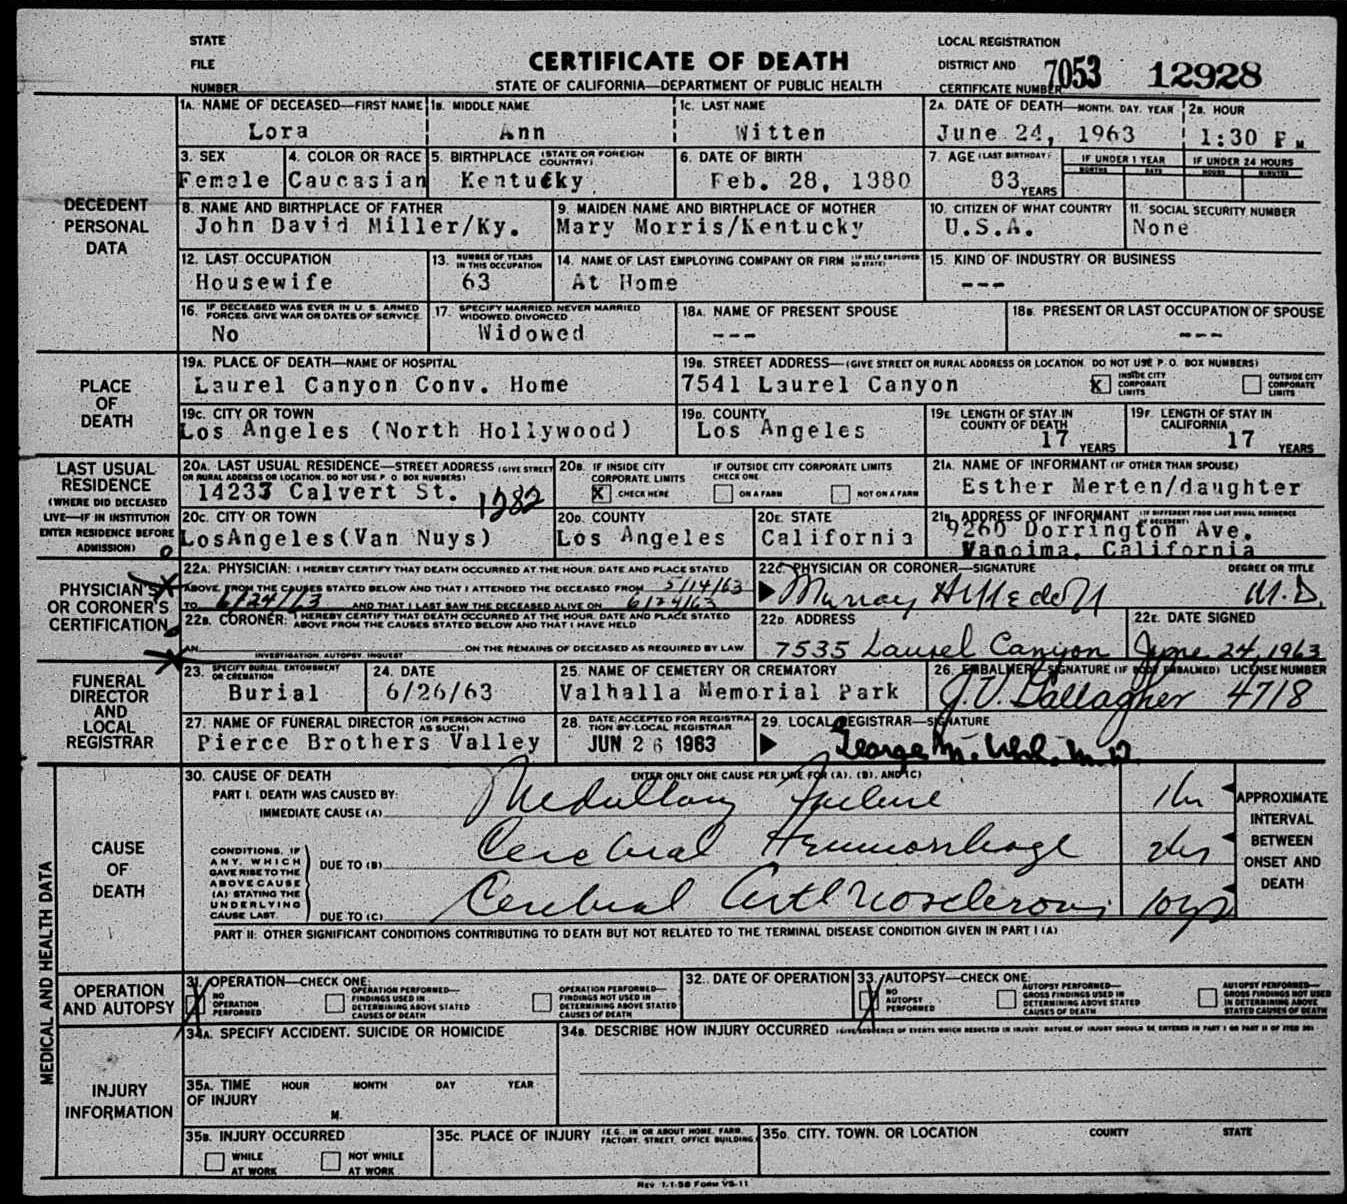 STATE
FILE
NUMBER
CERTIFICATE OF DEATH
STATE OF CALIFORNIA—DEPARTMENT OF PUBLIC HEALTH
LOCAL REGISTRATION
DISTRICT AND
CERTIFICATE NUMBER
7053 12928
DECEDENT
PERSONAL
DATA
1A. NAME OF DECEASED—FIRST NAME
Lora
1B. MIDDLE NAME
Ann
1C. LAST NAME
Witten
2A. DATE OF DEATH—MONTH, DAY, YEAR
June 24, 1963
2B. HOUR
1:30 P M.
3. SEX
Female
4. COLOR OR RACE
Caucasian
5. BIRTHPLACE (STATE OR FOREIGN COUNTRY)
Kentucky
6. DATE OF BIRTH
Feb. 28, 1880
7. AGE (LAST BIRTHDAY)
83 YEARS
IF UNDER 1 YEAR
MONTHS DAYS
IF UNDER 24 HOURS
HOURS MINUTES
8. NAME AND BIRTHPLACE OF FATHER
John David Miller/Ky.
9. MAIDEN NAME AND BIRTHPLACE OF MOTHER
Mary Morris/Kentucky
10. CITIZEN OF WHAT COUNTRY
U.S.A.
11. SOCIAL SECURITY NUMBER
None
12. LAST OCCUPATION
Housewife
13. NUMBER OF YEARS IN THIS OCCUPATION
63
14. NAME OF LAST EMPLOYING COMPANY OR FIRM (IF SELF EMPLOYED SO STATE)
At Home
15. KIND OF INDUSTRY OR BUSINESS
---
16. IF DECEASED WAS EVER IN U. S. ARMED FORCES, GIVE WAR OR DATES OF SERVICE
No
17. SPECIFY MARRIED, NEVER MARRIED WIDOWED, DIVORCED
Widowed
18A. NAME OF PRESENT SPOUSE
---
18B. PRESENT OR LAST OCCUPATION OF SPOUSE
---
PLACE
OF
DEATH
19A. PLACE OF DEATH—NAME OF HOSPITAL
Laurel Canyon Conv. Home
19B. STREET ADDRESS—(GIVE STREET OR RURAL ADDRESS OR LOCATION. DO NOT USE P. O. BOX NUMBERS)
7541 Laurel Canyon
X INSIDE CITY CORPORATE LIMITS
OUTSIDE CITY CORPORATE LIMITS
19C. CITY OR TOWN
Los Angeles (North Hollywood)
19D. COUNTY
Los Angeles
19E. LENGTH OF STAY IN COUNTY OF DEATH
17 YEARS
19F. LENGTH OF STAY IN CALIFORNIA
17 YEARS
LAST USUAL
RESIDENCE
(WHERE DID DECEASED
LIVE—IF IN INSTITUTION
ENTER RESIDENCE BEFORE
ADMISSION)
20A. LAST USUAL RESIDENCE—STREET ADDRESS (GIVE STREET OR RURAL ADDRESS OR LOCATION. DO NOT USE P. O. BOX NUMBERS)
14233 Calvert St. 1282
20B. IF INSIDE CITY CORPORATE LIMITS
X CHECK HERE
IF OUTSIDE CITY CORPORATE LIMITS CHECK ONE
ON A FARM NOT ON A FARM
21A. NAME OF INFORMANT (IF OTHER THAN SPOUSE)
Esther Merten/daughter
20C. CITY OR TOWN
LosAngeles(Van Nuys)
20D. COUNTY
Los Angeles
20E. STATE
California
21B. ADDRESS OF INFORMANT (IF DIFFERENT FROM LAST USUAL RESIDENCE OF DECEDENT)
9260 Dorrington Ave.
California
PHYSICIAN'S
OR CORONER'S
CERTIFICATION
22A. PHYSICIAN: I HEREBY CERTIFY THAT DEATH OCCURRED AT THE HOUR, DATE AND PLACE STATED
ABOVE, FROM THE CAUSES STATED BELOW AND THAT I ATTENDED THE DECEASED FROM 5/14/63
TO 6/24/63 AND THAT I LAST SAW THE DECEASED ALIVE ON 6/24/63
22B. CORONER: I HEREBY CERTIFY THAT DEATH OCCURRED AT THE HOUR, DATE AND PLACE STATED ABOVE FROM THE CAUSES STATED BELOW AND THAT I HAVE HELD
AN ON THE REMAINS OF DECEASED AS REQUIRED BY LAW.
INVESTIGATION, AUTOPSY, INQUEST
22C. PHYSICIAN OR CORONER—SIGNATURE DEGREE OR TITLE
Murray M.D.
22D. ADDRESS
7535 Laurel Canyon
22E. DATE SIGNED
June 24, 1963
FUNERAL
DIRECTOR
AND
LOCAL
REGISTRAR
23. SPECIFY BURIAL, ENTOMBMENT OR CREMATION
Burial
24. DATE
6/26/63
25. NAME OF CEMETERY OR CREMATORY
Valhalla Memorial Park
26. EMBALMER—SIGNATURE (IF BODY EMBALMED) LICENSE NUMBER
J.V. Gallagher 4718
27. NAME OF FUNERAL DIRECTOR (OR PERSON ACTING AS SUCH)
Pierce Brothers Valley
28. DATE ACCEPTED FOR REGISTRATION BY LOCAL REGISTRAR
JUN 26 1963
29. LOCAL REGISTRAR—SIGNATURE
George M. Uhl, M.D.
MEDICAL AND HEALTH DATA
CAUSE
OF
DEATH
30. CAUSE OF DEATH ENTER ONLY ONE CAUSE PER LINE FOR (A), (B), AND (C)
PART I. DEATH WAS CAUSED BY:
IMMEDIATE CAUSE (A) Medullary Failure 1hr
CONDITIONS, IF
ANY, WHICH
GAVE RISE TO THE
ABOVE CAUSE
(A) STATING THE
UNDERLYING
CAUSE LAST.
DUE TO (B) Cerebral Hemorrhage
DUE TO (C) Cerebral Arteriosclerosis 10yrs
APPROXIMATE
INTERVAL
BETWEEN
ONSET AND
DEATH
PART II: OTHER SIGNIFICANT CONDITIONS CONTRIBUTING TO DEATH BUT NOT RELATED TO THE TERMINAL DISEASE CONDITION GIVEN IN PART I (A)
OPERATION
AND AUTOPSY
31. OPERATION—CHECK ONE:
NO OPERATION PERFORMED
OPERATION PERFORMED—FINDINGS USED IN DETERMINING ABOVE STATED CAUSES OF DEATH
OPERATION PERFORMED—FINDINGS NOT USED IN DETERMINING ABOVE STATED CAUSES OF DEATH
32. DATE OF OPERATION
33. AUTOPSY—CHECK ONE:
NO AUTOPSY PERFORMED
AUTOPSY PERFORMED—GROSS FINDINGS USED IN DETERMINING ABOVE STATED CAUSES OF DEATH
AUTOPSY PERFORMED—GROSS FINDINGS NOT USED IN DETERMINING ABOVE STATED CAUSES OF DEATH
INJURY
INFORMATION
34A. SPECIFY ACCIDENT, SUICIDE OR HOMICIDE
34B. DESCRIBE HOW INJURY OCCURRED (GIVE SEQUENCE OF EVENTS WHICH RESULTED IN INJURY. NATURE OF INJURY SHOULD BE ENTERED IN PART I OR PART II OF ITEM 30)
35A. TIME OF INJURY
HOUR MONTH DAY YEAR
M.
35B. INJURY OCCURRED
WHILE AT WORK
NOT WHILE AT WORK
35C. PLACE OF INJURY (E.G., IN OR ABOUT HOME, FARM, FACTORY, STREET, OFFICE BUILDING)
35D. CITY, TOWN, OR LOCATION COUNTY STATE
Rev 1-1-58 Form VS-11